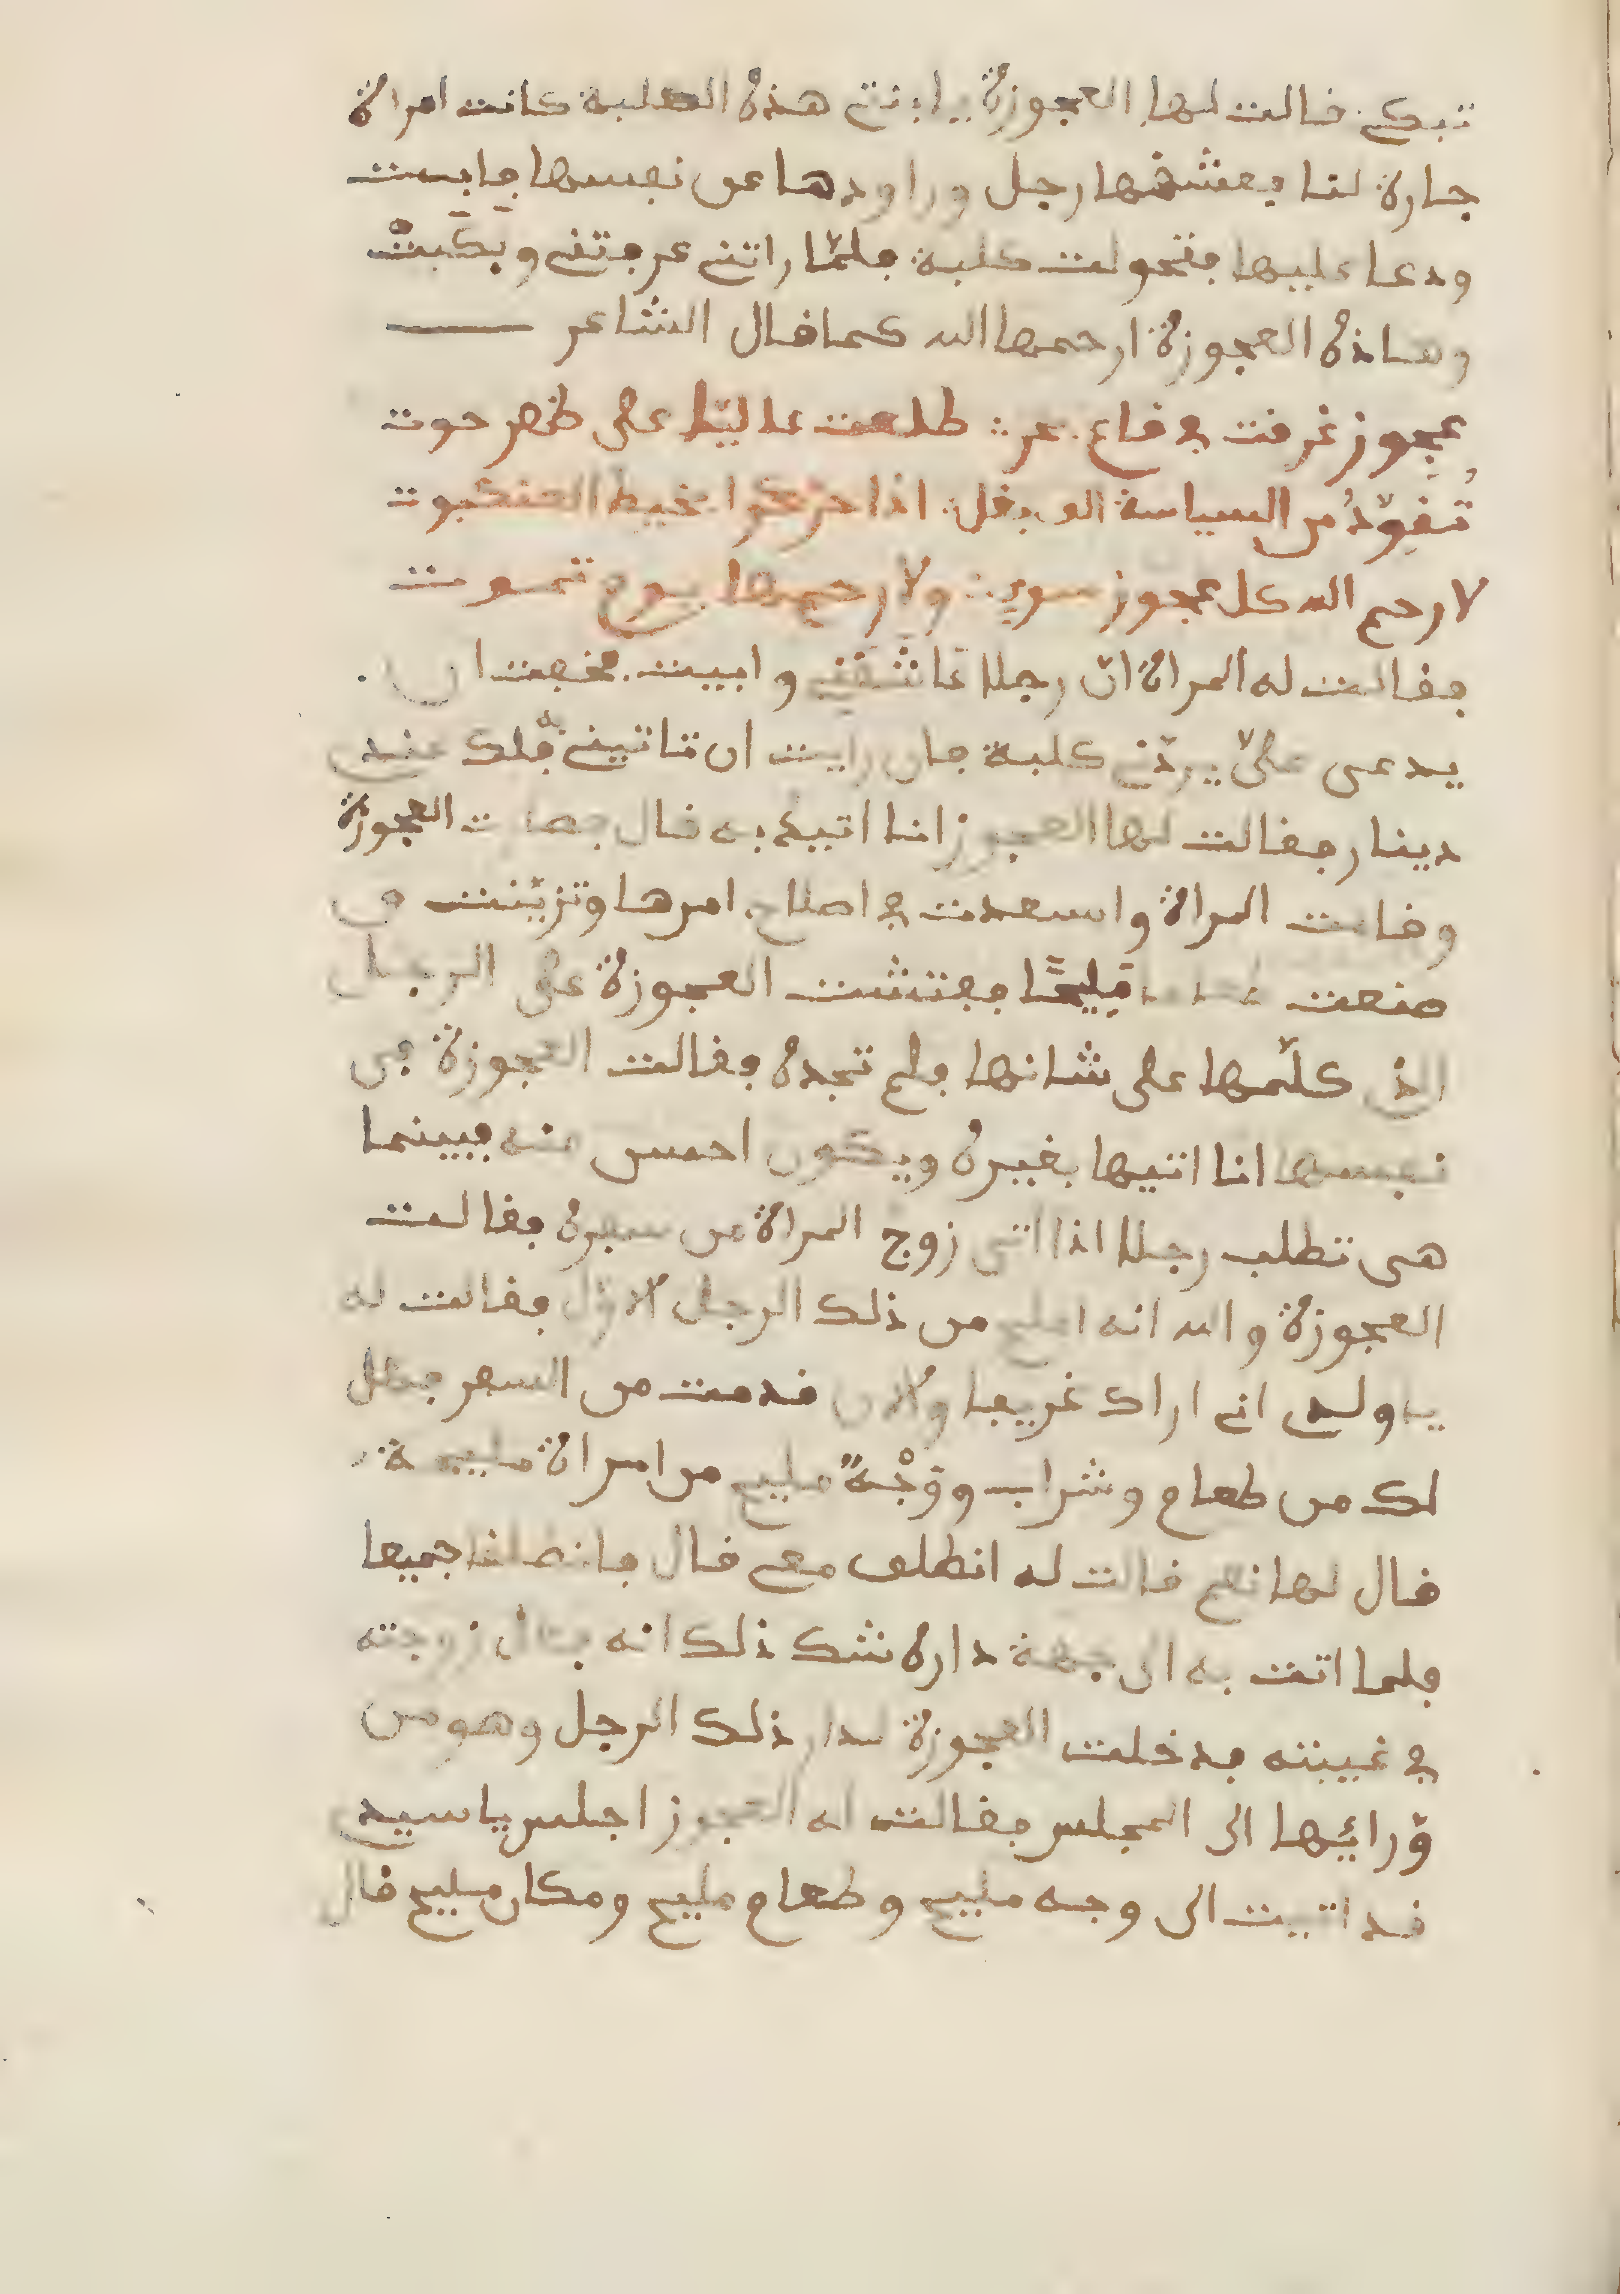 تبكي قالت لها العجوزة يا ابنتي هذه الكلبة كانت امراة
جارة لنا فعشقها رجل وراودها عن نفسها فابت
ودعا عليها فتحولت كلبة فلمّا راتني عرفتني وبَكَيتْ
وهاذه العجوزة ارحمها الله كما قال الشاعر
عجوز غرقت في قاع بحر ∴ طلعت عاليّا على ظهر حوت
تقوّدُ من السياسة الف بغل ∴ اذا حرنكوا بخيط العنكبوت
لا رحم الله كل عجوز سوء ∴ ولا رحمها يوم تموت
فقالت له المراة انّ رجلا عاشَقَني وابيت فخفت ان
يدعى عليّ يردّني كلبة فان رايت ان تاتيني به فلك عندي
دينار فقالت لها العجوز انا اتيك به قال فمضات العجوزة
وقامت المراة واسعدت في اصلاح امرها وتزيّنت و
صنعت طعاما مَلِيحًا ففتشت العجوزة على الرجل
الذي كلّمها على شانها فلم تجده فقالت العجوزة في
نفسها انا اتيها بغيره ويكون احسن منه فبينما
هى تطلب رجلا اذا اتى زوج المراة من سفره فقالت
العجوزة والله انه املح من ذلك الرجل الاوّل فقالت له
يا ولدي اني اراك غريبا والان قدمت من السفر فهل
لك من طعام وشراب ووَجْهٌ مليح من امراة مليحة
قال لها نعم قالت له انطلق معي قال فانطلقا جميعا
فلما اتت به الى جهة داره شك ذلك انه فتال زوجته
في غيبته فدخلت العجوزة لدار ذلك الرجل وهو من
وّرائها الى المجلس فقالت له العجوز اجلس يا سيدي
قد اتيت الى وجه مليح وطعام مليح ومكان مليح قال